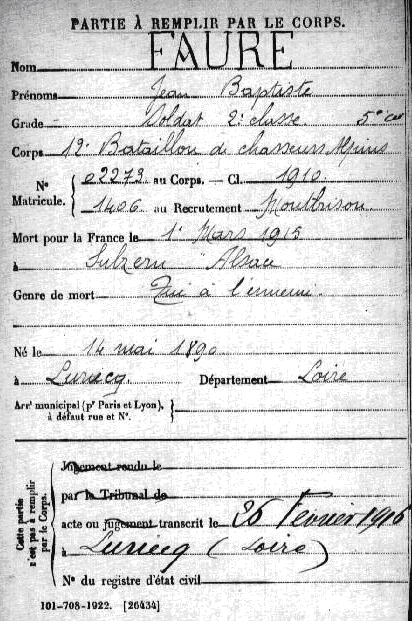 PARTIE À REMPLIR PAR LE CORPS.
Nom FAURE
Prénoms Jean Baptiste
Grade Soldat 2e classe 5e Cie
Corps 12e Bataillon de chasseurs Alpins
N° Matricule. { 02273 au Corps. — Cl. 1910
1406 au Recrutement Montbrison
Mort pour la France le 1er Mars 1915
à Sulzern Alsace
Genre de mort Tué à l'ennemi.
Né le 14 mai 1890
à Luriecq. Département Loire
Arrt municipal (pr Paris et Lyon),
à défaut rue et N°.
Cette partie n'est pas à remplir par le Corps.
Jugement rendu le
par le Tribunal de
acte ou jugement transcrit le 26 Février 1916
à Luriecq (Loire)
N° du registre d'état civil
101-708-1922. [26434]